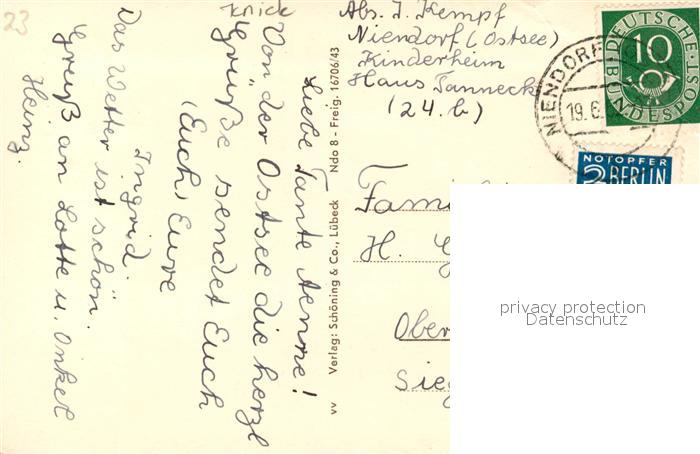 23
Knick
Liebe Tante Aenne!
Von der Ostsee die herzl
Grüße sendet Euch
(Euch) Eure
Ingrid.
Das Wetter ist schön.
Gruß an Lotte u. Onkel
Heinz.
VV Verlag: Schöning & Co., Lübeck Ndo 8 - Freig. 16706/43
Abs. I. Kempf
Niendorf (Ostsee)
Kinderheim
Haus Tanneck
(24. b)
DEUTSCHE
10
BUNDESPO
NIENDORF
19.6.
NOTOPFER
2 BERLIN
Fami
H. G
Ober
Sieg
privacy protection
Datenschutz